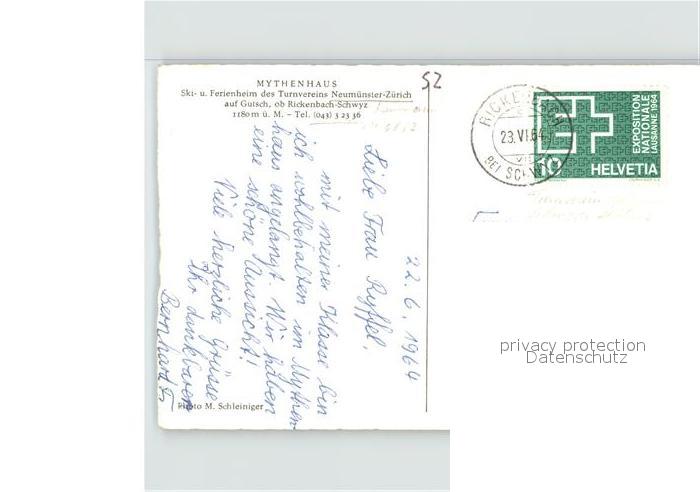 MYTHENHAUS
Ski- u. Ferienheim des Turnvereins Neumünster-Zürich
auf Gutsch, ob Rickenbach-Schwyz
1180 m ü. M. – Tel. (043) 3 23 36
52
22. 6. 1964
Liebe Frau Ryffel,
mit meiner Klasse bin
ich wohlbehalten im Mythen-
haus angelangt. Wir haben
eine schöne Aussicht!
Viele herzliche Grüsse
Ihr dankbarer
Bernhard
Photo M. Schleiniger
RICKENBACH
23.VI.64
BEI SCHWYZ
EXPOSITION
NATIONALE
LAUSANNE 1964
10
HELVETIA
privacy protection
Datenschutz